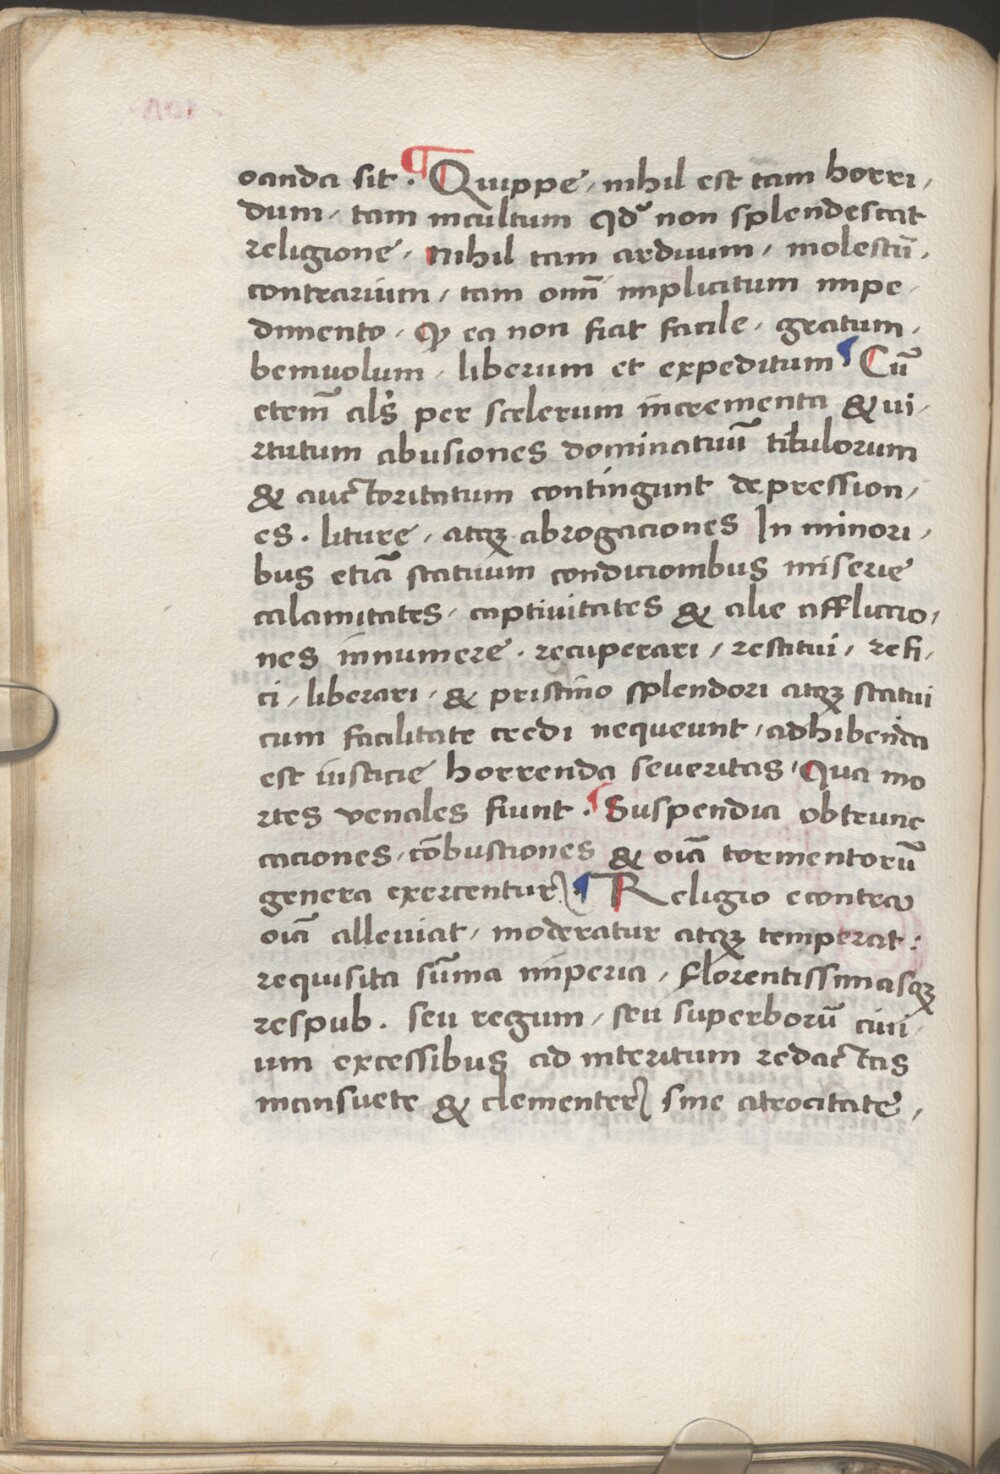 oanda sit. ¶ Quippe, nihil est tam horri,
dum, tam incultum qd' non splendescat
religione, nihil tam arduum, molestū,
contrarium, tam omī implicitum impe,
dimento, qꝫ ea non fiat facile, gratum,
benivolum, liberum et expeditum ¶ Cū
etem̄ al's per scelerum incrementa & vi,
rtutum abusiones dominatuū titulorum
& auctoritatum contingunt depression,
es. liture, atqꝫ abrogaciones In minori,
bus etiā statuum condicionibus miserie
calamitates, captivitates & alie afflictio,
nes innumere. recuperari, restitui, refi,
ci, liberari, & pristino splendori atqꝫ statui
cum facilitate credi nequeunt, adhibenda
est iusticie horrenda severitas, Qua mo
rtes venales fiunt. ¶ Suspendia obtrunc
caciones, cōbustiones & oīa tormentorū
genera exercentur, ¶ Religio econtra
oīa alleviat, moderatur atqꝫ temperat:
requisita sūma imperia, florentissimasqꝫ
respub. seu regum, seu superborū civi,
um excessibus ad interitum redactas
mansuete & clementer, sine atrocitate,